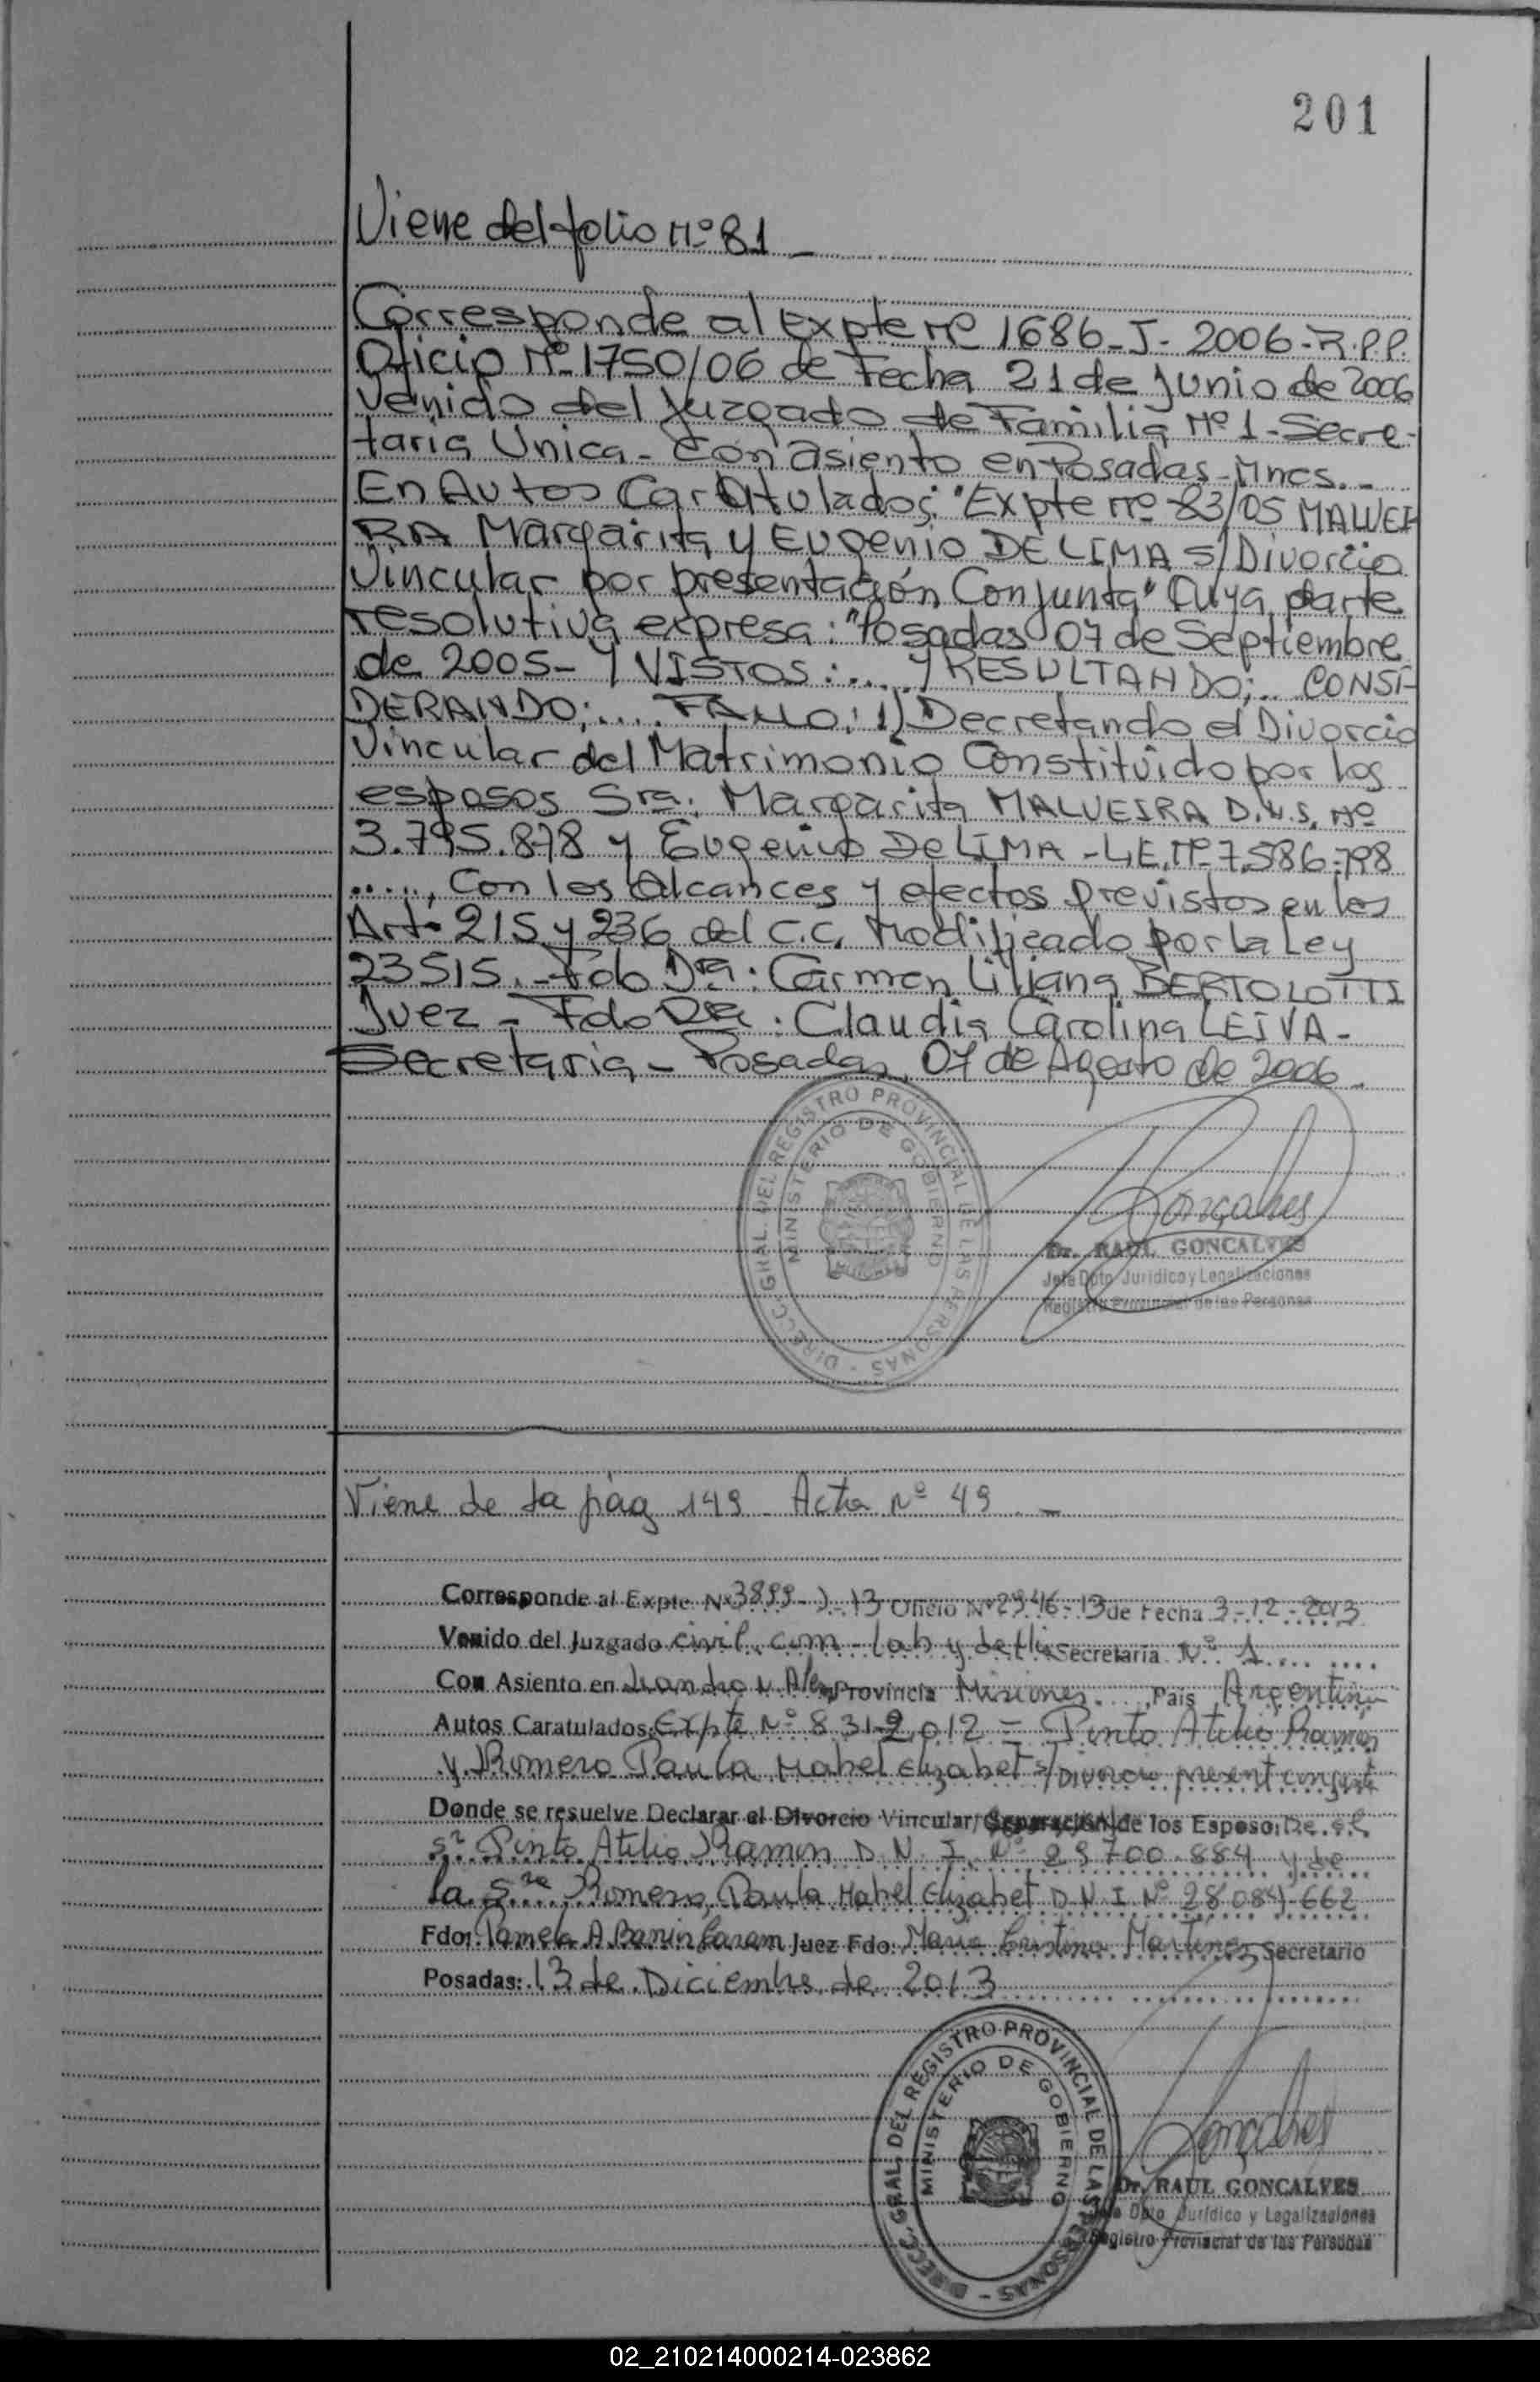 201
Viene del folio Nº 81 -
Corresponde al Expte Nº 1686-J-2006-R.P.P.
Oficio Nº 1750/06 de Fecha 21 de Junio de 2006
Venido del Juzgado de Familia Nº 1 - Secre-
taria Unica - Con asiento en Posadas - Mnes. -
En Autos Caratulados: "Expte nº 83/05 MALVEI
RA Margarita y Eugenio DE LIMA S/ Divorcio
Vincular por presentación Conjunta" Cuya parte
resolutiva expresa: "Posadas 07 de Septiembre
de 2005 - Y VISTOS: .... Y RESULTANDO; .. CONSI-
DERANDO; .... FALLO: 1) Decretando el Divorcio
Vincular del Matrimonio Constituido por los
esposos Sra: Margarita MALVEIRA D.N.I. Nº
3.795.878 y Eugenio De LIMA - L.E. Nº 7.586.798
....., Con los Alcances y efectos previstos en los
Art. 215 y 236 del C.C. Modificado por la Ley
23515. - Fdo Dra: Carmen Liliana BERTOLOTTI
Juez - Fdo Dra: Claudia Carolina LEIVA -
Secretaria - Posadas, 07 de Agosto de 2006.
DIRECC. GRAL. DEL REGISTRO PROVINCIAL DE LAS PERSONAS
MINISTERIO DE GOBIERNO
Goncalves
Dr. RAUL GONCALVES
Jefe Dpto. Jurídico y Legalizaciones
Registro Provincial de las Personas
Viene de la pág 149 Acta Nº 49 -
Corresponde al Expte. Nº 3899-J-13 Oficio Nº 2946-13 de Fecha 3-12-2013
Venido del Juzgado civil, com - lab y de fli Secretaria Nº 1
Con Asiento en Leandro N. Alem Provincia Misiones País Argentina
Autos Caratulados: Expte Nº 831-2012 = Pinto Atilio Ramon
y Romero Paula Mabel Elizabet s/ Divorcio present conjunta
Donde se resuelve Declarar el Divorcio Vincular/Separación de los Esposo: De el
Sr Pinto Atilio Ramon D.N.I. Nº 29700.884 y de
la Sra Romero, Paula Mabel Elizabet D.N.I Nº 28.084.662
Fdo: Pamela A Barrios Caram Juez Fdo: Maria Cristina Martinez Secretario
Posadas: 13 de Diciembre de 2013
DIRECC. GRAL. DEL REGISTRO PROVINCIAL DE LAS PERSONAS
MINISTERIO DE GOBIERNO
Goncalves
Dr. RAUL GONCALVES
Jefe Dpto Jurídico y Legalizaciones
Registro Provincial de las Personas
02_210214000214-023862